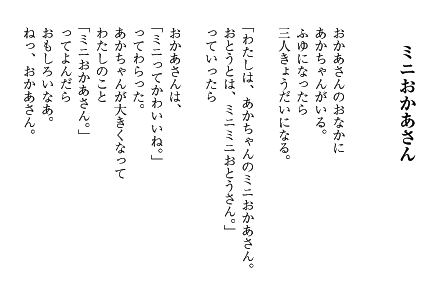 ミニおかあさん
おかあさんのおなかに
あかちゃんがいる。
ふゆになったら
三人きょうだいになる。
「わたしは、あかちゃんのミニおかあさん。
おとうとは、ミニミニおとうさん。」
っていったら
おかあさんは、
「ミニってかわいいね。」
ってわらった。
あかちゃんが大きくなって
わたしのこと
「ミニおかあさん。」
ってよんだら
おもしろいなあ。
ねっ、おかあさん。